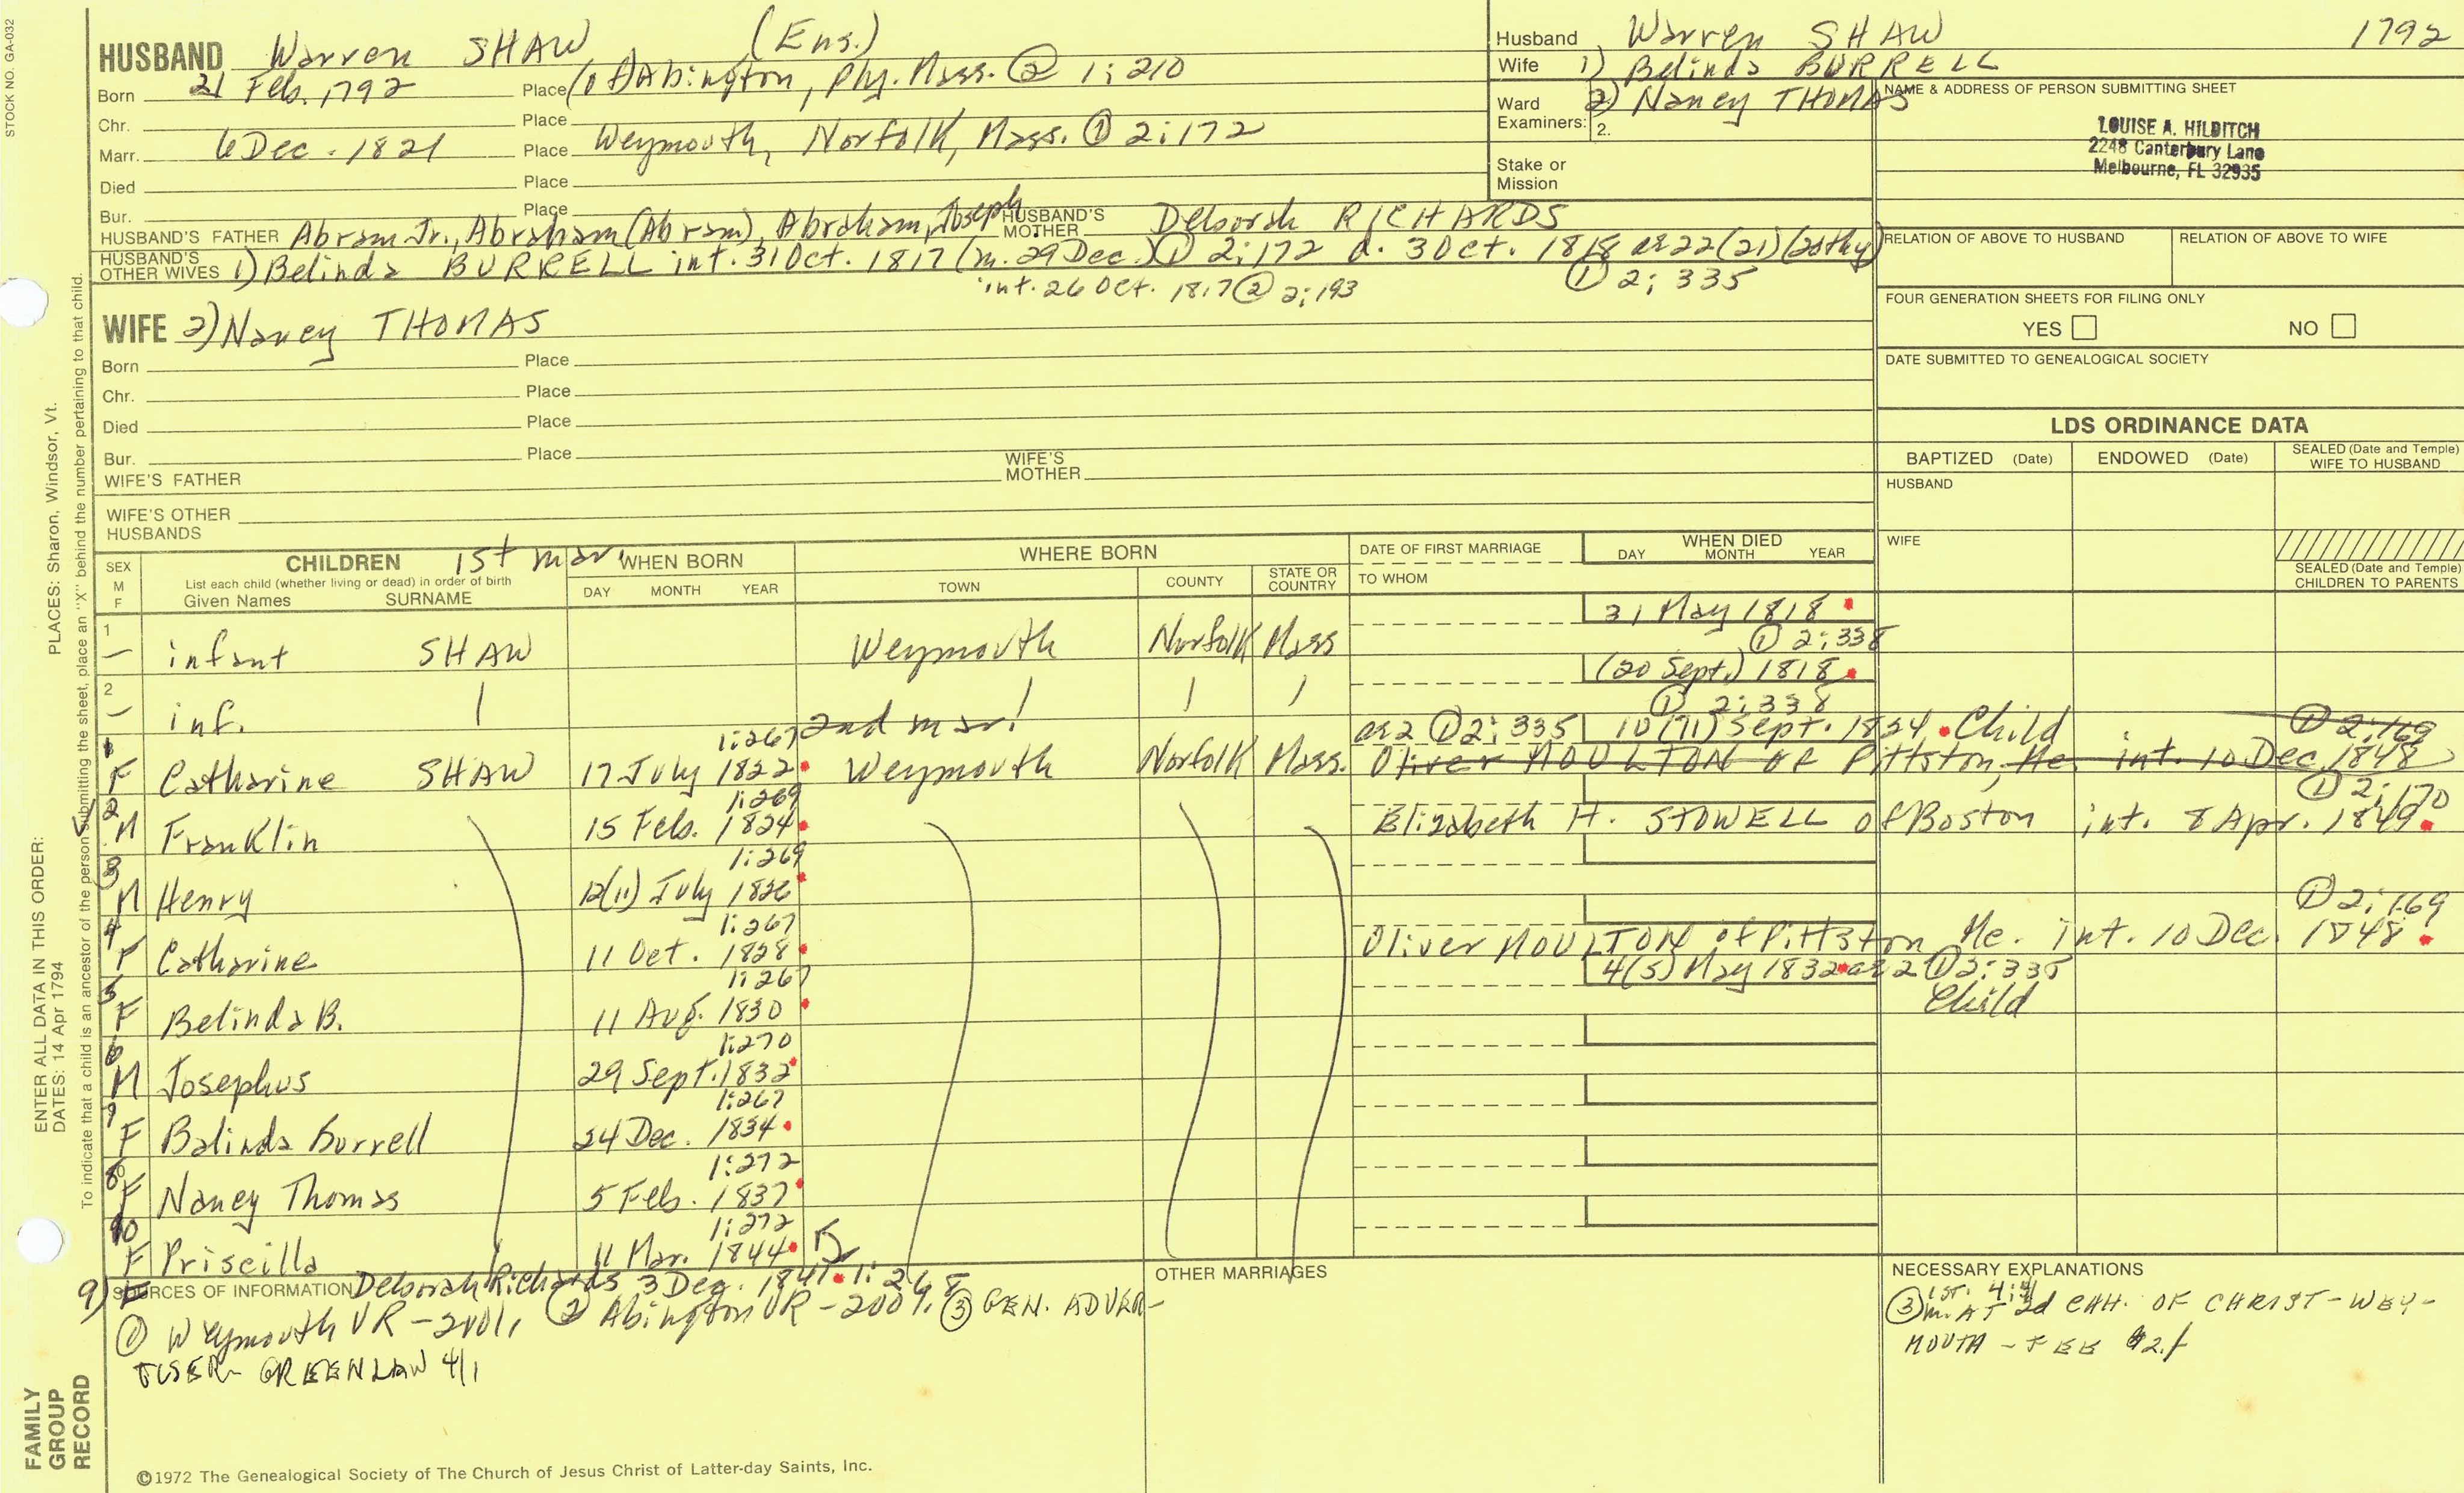 STOCK NO. GA-032
HUSBAND Warren SHAW (Ens.)
Born 21 Feb. 1792 Place (of) Abington, Ply. Mass. ② 1:210
Chr. Place
Marr. 6 Dec. 1821 Place Weymouth, Norfolk, Mass. ① 2:172
Died Place
Bur. Place
HUSBAND'S FATHER Abram Jr., Abraham (Abram), Abraham, Joseph HUSBAND'S MOTHER Deborah RICHARDS
HUSBAND'S OTHER WIVES 1) Belinda BURRELL int. 31 Oct. 1817 (m. 29 Dec.) ① 2:172 d. 3 Oct. 1818 ae 22 (21)
int. 26 Oct. 1817 ② 2:193 ① 2:335
Husband Warren SHAW 1792
Wife 1) Belinda BURRELL
Ward Examiners: 2) Nancy THOMAS
2.
Stake or Mission
NAME & ADDRESS OF PERSON SUBMITTING SHEET
LOUISE A. HILDITCH
2248 Canterbury Lane
Melbourne, FL 32935
RELATION OF ABOVE TO HUSBAND RELATION OF ABOVE TO WIFE
FOUR GENERATION SHEETS FOR FILING ONLY
YES NO
DATE SUBMITTED TO GENEALOGICAL SOCIETY
WIFE 2) Nancy THOMAS
Born Place
Chr. Place
Died Place
Bur. Place
WIFE'S FATHER WIFE'S MOTHER
WIFE'S OTHER HUSBANDS
LDS ORDINANCE DATA
BAPTIZED (Date) ENDOWED (Date) SEALED (Date and Temple) WIFE TO HUSBAND
HUSBAND
WIFE
SEALED (Date and Temple) CHILDREN TO PARENTS
SEX M F
CHILDREN 1st mar.
List each child (whether living or dead) in order of birth
Given Names SURNAME
WHEN BORN
DAY MONTH YEAR
WHERE BORN
TOWN COUNTY STATE OR COUNTRY
DATE OF FIRST MARRIAGE
TO WHOM
WHEN DIED
DAY MONTH YEAR
31 May 1818
1 — infant SHAW Weymouth Norfolk Mass ① 2:338
(20 Sept.) 1818
2 — inf. ① 2:338
2nd mar.
1:267 ae 2 ① 2:335 10 (11) Sept. 1824 Child ① 2:169
1 F Catharine SHAW 17 July 1822 Weymouth Norfolk Mass. Oliver MOULTON of Pittston, Me. int. 10 Dec. 1848
1:269 ① 2:170
2 M Franklin 15 Feb. 1824 Elizabeth H. STOWELL of Boston int. 8 Apr. 1849
1:269
3 M Henry 12(11) July 1826
1:267 ① 2:169
4 F Catharine 11 Oct. 1828 Oliver MOULTON of Pittston Me. int. 10 Dec. 1848
1:267 4(5) May 1832 ae 2 ① 2:335
5 F Belinda B. 11 Aug. 1830 Child
1:270
6 M Josephus 29 Sept. 1832
1:267
7 F Balinda Burrell 24 Dec. 1834
1:272
8 F Nancy Thomas 5 Feb. 1837
1:272
10 F Priscilla 11 Mar. 1844
9) F Deborah Richards 3 Dec. 1841 1:268
SOURCES OF INFORMATION
① Weymouth VR - ② Abington VR - ③ GEN. ADVER-
TISER GREENLAW 4/1
OTHER MARRIAGES
NECESSARY EXPLANATIONS
③ m. AT 2d CHH. OF CHRIST - WEY-
MOUTH - FEE
ENTER ALL DATA IN THIS ORDER:
PLACES: Sharon, Windsor, Vt.
DATES: 14 Apr 1794
To indicate that a child is an ancestor of the person submitting the sheet, place an "X" behind the number pertaining to that child.
FAMILY
GROUP
RECORD
©1972 The Genealogical Society of The Church of Jesus Christ of Latter-day Saints, Inc.